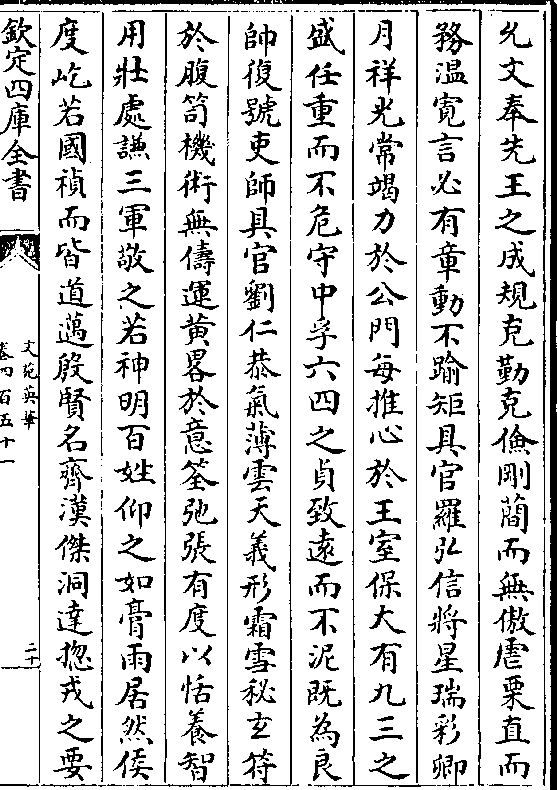 允文奉先王之成規克勤克儉剛簡而無傲虐栗直而
務溫寛言必有章動不踰矩具官羅弘信將星瑞彩卿
月祥光常竭力於公門每推心於王室保大有九三之
盛任重而不危守中孚六四之貞致遠而不泥既為良
帥復號吏師具官劉仁恭氣薄雲天義形霜雪秘玄符
於腹笥機術無儔運黄畧於意筌弛張有度以恬養智
用壯處謙三軍敬之若神明百姓仰之如膏雨居然侯
度屹若國禎而皆道邁殷賢名齊漢傑洞達揔戎之要
欽定四庫全書
文苑英華
卷四百五十一
二十